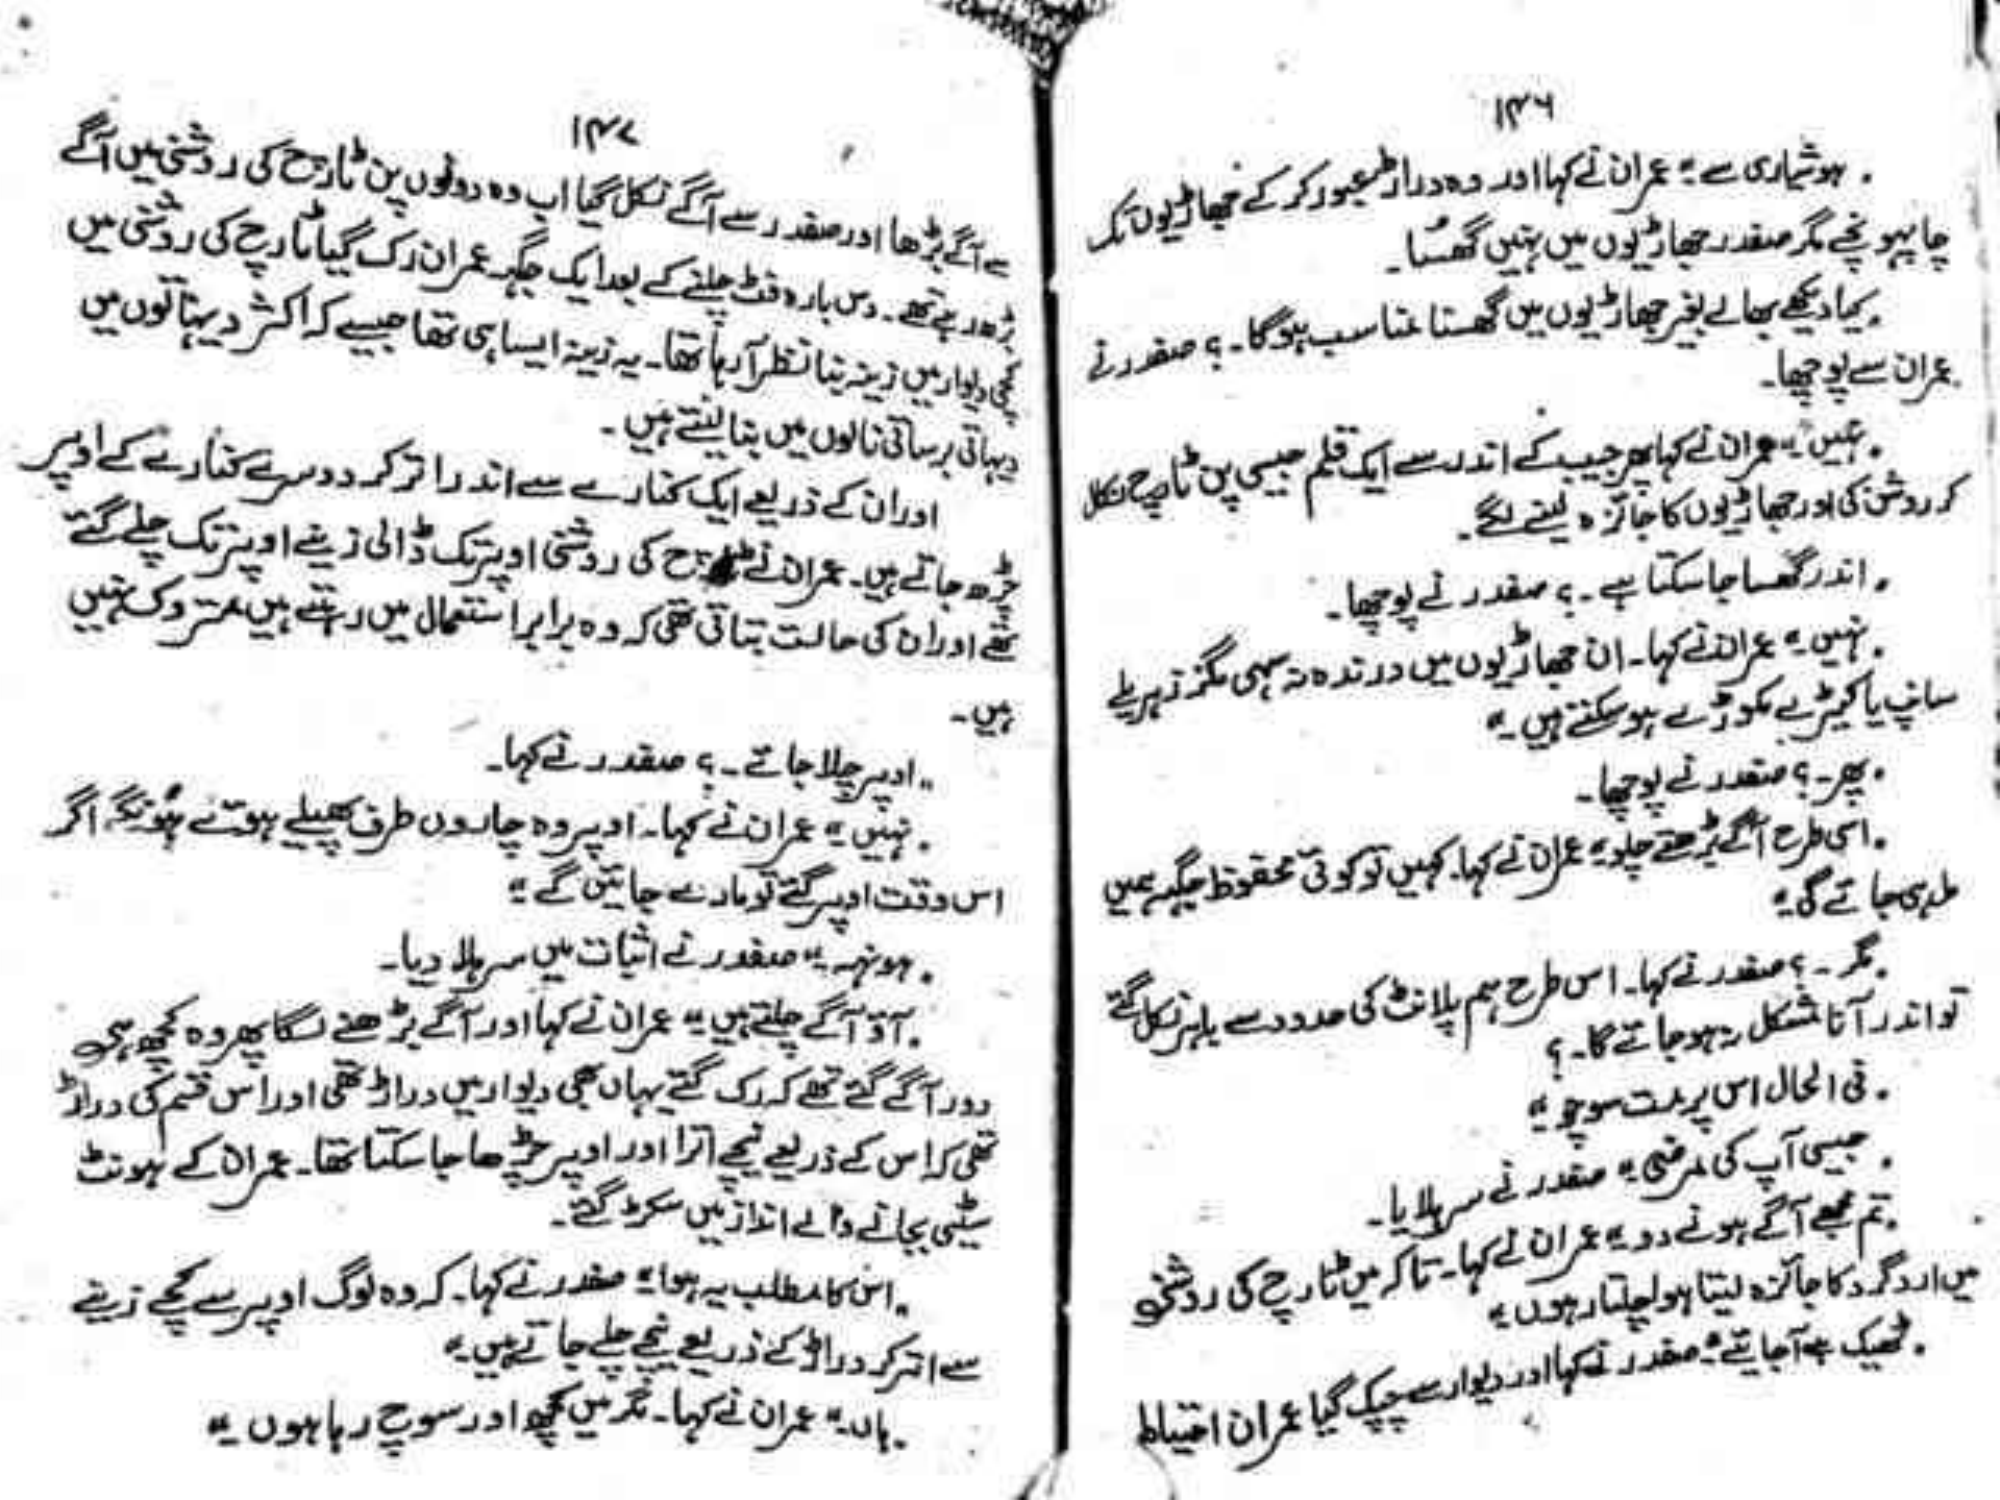 ۱۴۶
۔ ہوشیاری سے ۔" عمران نے کہا اور وہ دراڑ عبور کر کے جھاڑیوں تک
جا پہونچے مگر صفدر جھاڑیوں میں نہیں گھسا۔
۔ کیا دیکھے بھالے بغیر جھاڑیوں میں گھسنا مناسب ہوگا ۔ ؟ صفدر نے
عمران سے پوچھا۔
۔ نہیں ۔" عمران نے کہا پھر جیب کے اندر سے ایک قلم جیسی پن ٹارچ نکال
کر روشن کی اور جھاڑیوں کا جائزہ لینے لگے۔
۔ اندر گھسا جا سکتا ہے ۔ ؟ صفدر نے پوچھا۔
۔ نہیں ۔" عمران نے کہا۔ ان جھاڑیوں میں درندہ نہ سہی مگر زہریلے
سانپ یا کیڑے مکوڑے ہو سکتے ہیں ۔"
۔ پھر ۔ ؟ صفدر نے پوچھا۔
۔ اسی طرح آگے بڑھتے چلو ۔" عمران نے کہا۔ کہیں تو کوئی محفوظ جگہ ہمیں
مل ہی جائے گی ۔"
۔ مگر ۔ ؟ صفدر نے کہا۔ اس طرح ہم پلانٹ کی حدود سے باہر نکل گئے
تو اندر آنا مشکل ہو جائے گا ۔ ؟
۔ فی الحال اس پر مت سوچو ۔"
۔ جیسی آپ کی مرضی ۔" صفدر نے سر ہلایا۔
۔ تم مجھے آگے ہونے دو ۔" عمران نے کہا۔ تاکہ میں ٹارچ کی روشنی
میں ارد گرد کا جائزہ لیتا ہوا چلتا رہوں ۔"
۔ ٹھیک ہے آجائیے ۔" صفدر نے کہا اور دیوار سے چپک گیا عمران احتیاط
۱۴۷
سے آگے بڑھا اور صفدر سے آگے نکل گیا اب وہ دونوں پن ٹارچ کی روشنی میں آگے
بڑھ رہے تھے۔ دس بارہ فٹ چلنے کے بعد ایک جگہ عمران رک گیا ٹارچ کی روشنی میں
کچی دیوار میں زینہ بنا نظر آ رہا تھا۔ یہ زینہ ایسا ہی تھا جیسے کہ اکثر دیہاتوں میں
دیہاتی برساتی نالوں میں بنا لیتے ہیں ۔
اور ان کے ذریعے ایک کنارے سے اندر اتر کر دوسرے کنارے کے اوپر
چڑھ جاتے ہیں۔ عمران نے ٹارچ کی روشنی اوپر تک ڈالی زینے اوپر تک چلے گئے
تھے اور ان کی حالت بتاتی تھی کہ وہ برابر استعمال میں رہتے ہیں متروک نہیں
ہیں ۔
" اوپر چلا جائے ۔ ؟ صفدر نے کہا۔
۔ نہیں ۔" عمران نے کہا۔ اوپر وہ چاروں طرف پھیلے ہوئے ہونگے اگر
اس وقت اوپر گئے تو مارے جائیں گے ۔"
۔ ہونہہ ۔" صفدر نے اثبات میں سر ہلا دیا۔
۔ آؤ آگے چلتے ہیں ۔" عمران نے کہا اور آگے بڑھنے لگا پھر وہ کچھ ہی
دور آگے گئے تھے کہ رک گئے یہاں بھی دیوار میں دراڑ تھی اور اس قسم کی دراڑ
تھی کہ اس کے ذریعے نیچے اترا اور اوپر چڑھا جا سکتا تھا۔ عمران کے ہونٹ
سیٹی بجانے والے انداز میں سکڑ گئے۔
۔ اس کا مطلب یہ ہوا ۔" صفدر نے کہا۔ کہ وہ لوگ اوپر سے کچے زینے
سے اتر کر دراڑ کے ذریعے نیچے چلے جاتے ہیں ۔"
۔ ہاں ۔" عمران نے کہا۔ مگر میں کچھ اور سوچ رہا ہوں ۔"